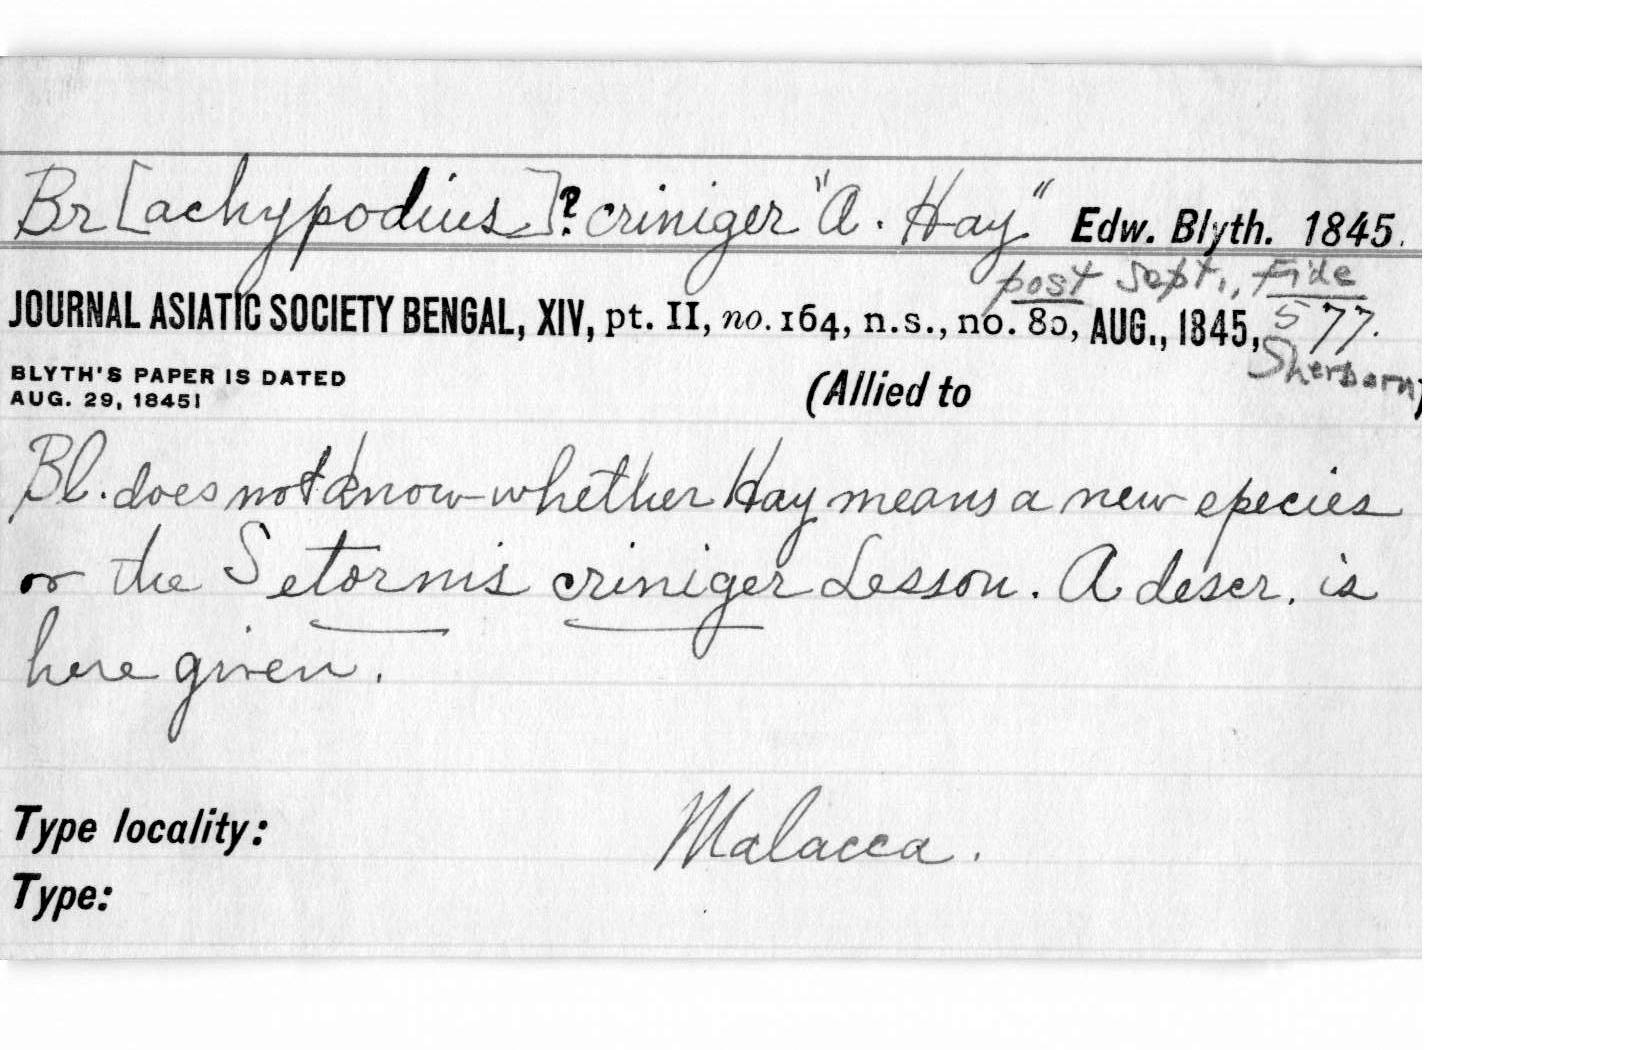 Br[achypodius]? criniger "A. Hay" Edw. Blyth. 1845.
post Sept., Fide
JOURNAL ASIATIC SOCIETY BENGAL, XIV, pt. II, no. 164, n.s., no. 80, AUG., 1845, 577.
Sherborn
BLYTH'S PAPER IS DATED
AUG. 29, 1845!
(Allied to )
Bl. does not know whether Hay means a new species
or the Setornis criniger Lesson. A descr. is
here given.
Type locality: Malacca.
Type: